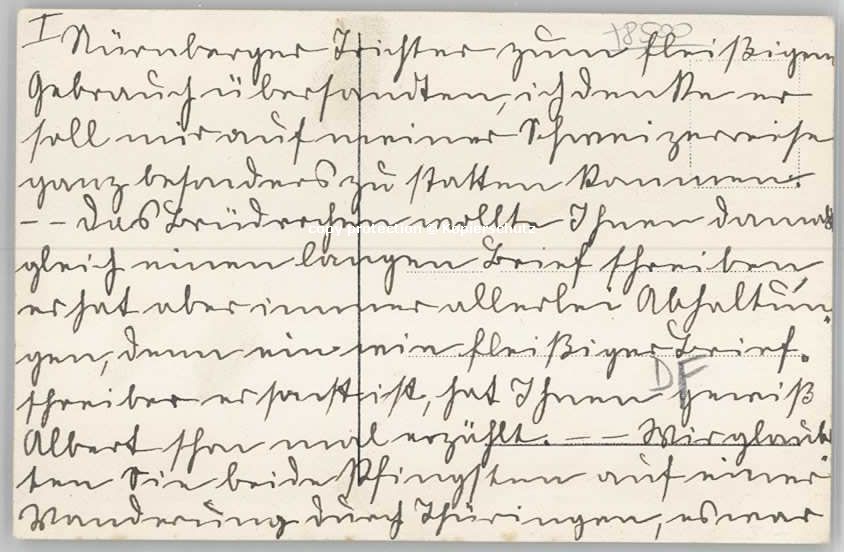 I Nürnberger Trichter zum fleißigen
Gebrauch übersandten, ich denke er
soll mir auf meiner Schweizerreise
ganz besonders zu statten kommen.
-- Das Brüderchen wollte Ihnen damals
copy protection @ Kopierschutz
gleich einen langen Brief schreiben
er hat aber immer allerlei Abhaltun
gen, denn ein wie fleißiger Brief.
DF
schreiber er sonst ist, hat Ihnen gewiß
Albert schon mal erzählt. -- Wir glaub
ten Sie beide Pfingsten auf einer
Wanderung durch Thüringen, es war